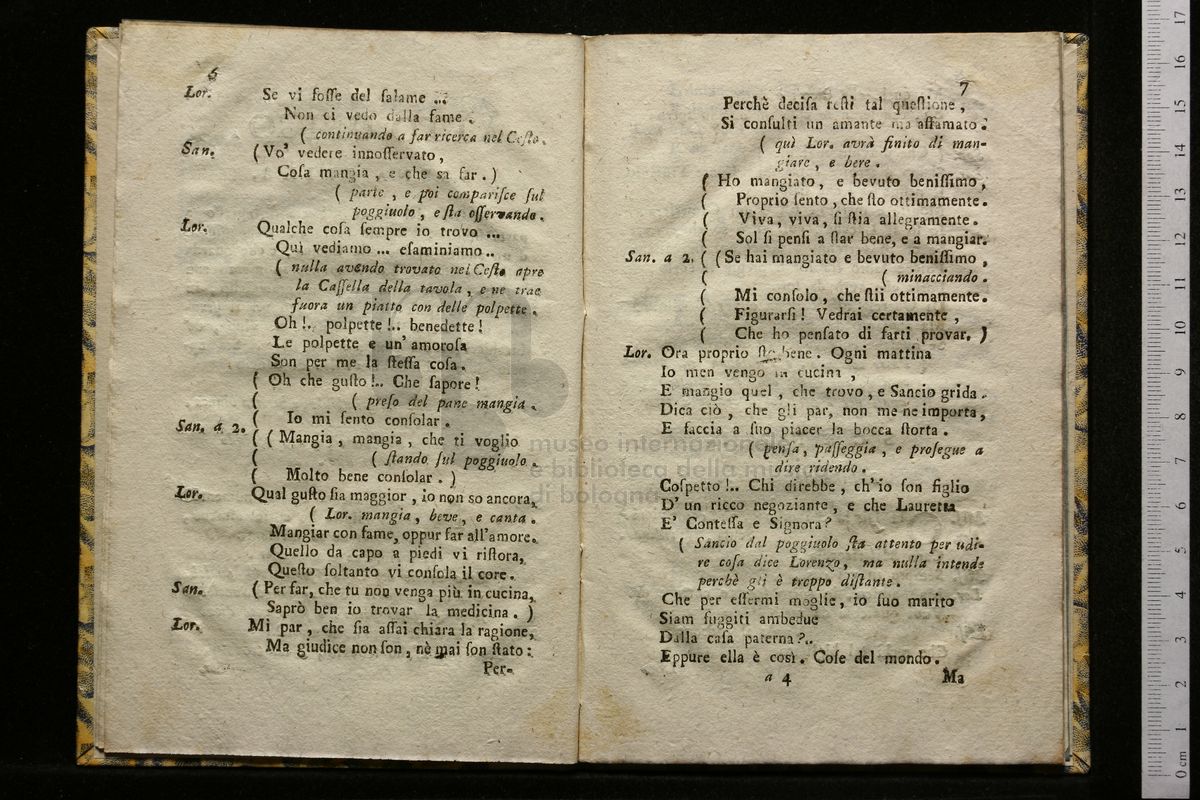 6
Lor. Se vi foſſe del ſalame ...
Non ci vedo dalla fame.
( continuando a far ricerca nel Ceſto.
San. (Vo' vedere innoſſervato,
Coſa mangia, e che sa far.)
( parte, e poi compariſce ſul
poggiuolo, e ſta oſſervando.
Lor. Qualche coſa ſempre io trovo ...
Quì vediamo ... eſaminiamo ..
( nulla avendo trovato nel Ceſto apre
la Caſſella della tavola, e ne trae
fuora un piatto con delle polpette.
Oh!.. polpette!.. benedette!
Le polpette e un' amoroſa
Son per me la ſteſſa coſa.
( Oh che guſto!.. Che ſapore!
( ( preſo del pane mangia.
( Io mi ſento conſolar.
San. a 2. ( ( Mangia, mangia, che ti voglio
( ( ſtando ſul poggiuolo.
( Molto bene conſolar. )
Lor. Qual guſto ſia maggior, io non so ancora,
( Lor. mangia, beve, e canta.
Mangiar con fame, oppur far all'amore.
Quello da capo a piedi vi riſtora,
Queſto ſoltanto vi conſola il core.
San. (Per far, che tu non venga più in cucina,
Saprò ben io trovar la medicina. )
Lor. Mi par, che ſia aſſai chiara la ragione,
Ma giudice non ſon, nè mai ſon ſtato:
Per-
7
Perchè deciſa reſti tal queſtione,
Si conſulti un amante ma affamato.
( quì Lor. avrà finito di man-
giare, e bere.
( Ho mangiato, e bevuto beniſſimo,
( Proprio ſento, che ſto ottimamente.
( Viva, viva, ſi ſtia allegramente.
( Sol ſi penſi a ſtar bene, e a mangiar.
San. a 2. ( (Se hai mangiato e bevuto beniſſimo,
( ( minacciando.
( Mi conſolo, che ſtii ottimamente.
( Figurarſi! Vedrai certamente,
( Che ho penſato di farti provar. )
Lor. Ora proprio ſto bene. Ogni mattina
Io men vengo in cucina,
E mangio quel, che trovo, e Sancio grida.
Dica ciò, che gli par, non me ne importa,
E faccia a ſuo piacer la bocca ſtorta.
( penſa, paſſeggia, e proſegue a
dire ridendo.
Coſpetto!.. Chi direbbe, ch'io ſon figlio
D' un ricco negoziante, e che Lauretta
E' Conteſſa e Signora?
( Sancio dal poggiuolo ſta attento per udi-
re coſa dice Lorenzo, ma nulla intende
perchè gli è troppo diſtante.
Che per eſſermi moglie, io ſuo marito
Siam fuggiti ambedue
Dalla caſa paterna?..
Eppure ella è così. Coſe del mondo.
a 4 Ma
museo internazionale
e biblioteca della musica
di bologna
0 cm 1 2 3 4 5 6 7 8 9 10 11 12 13 14 15 16 17